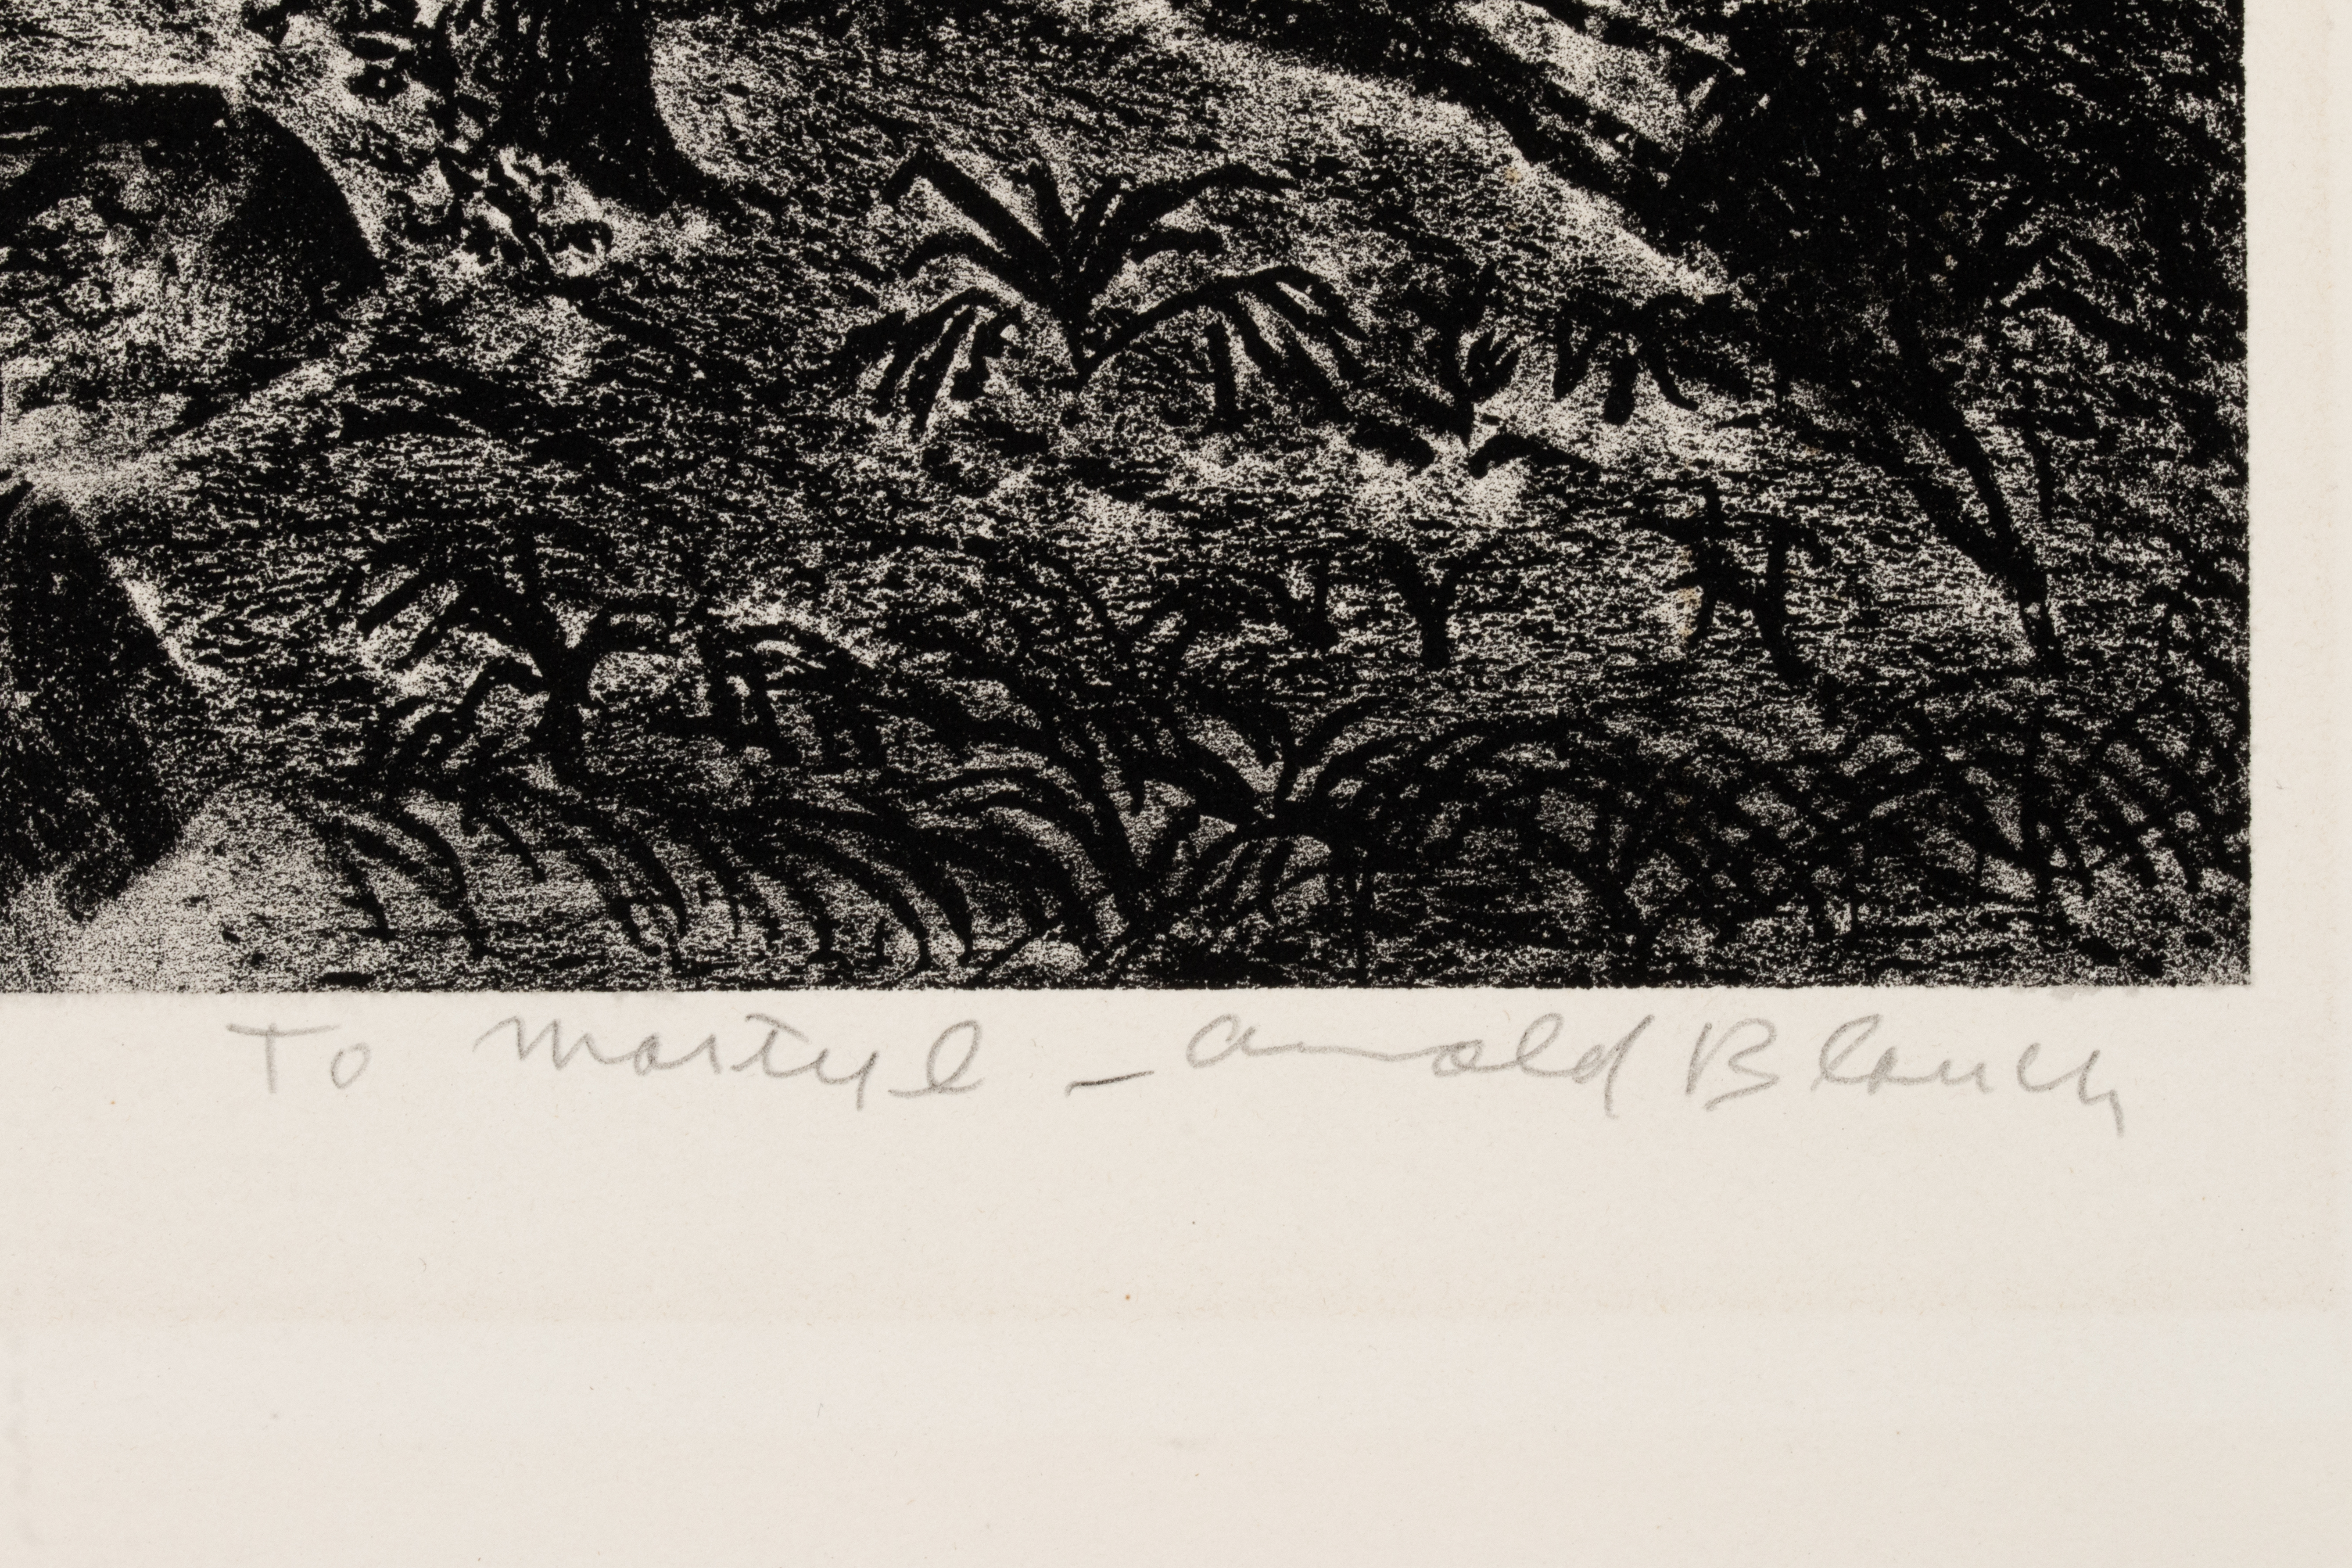 To Martyl - Arnold Blanch